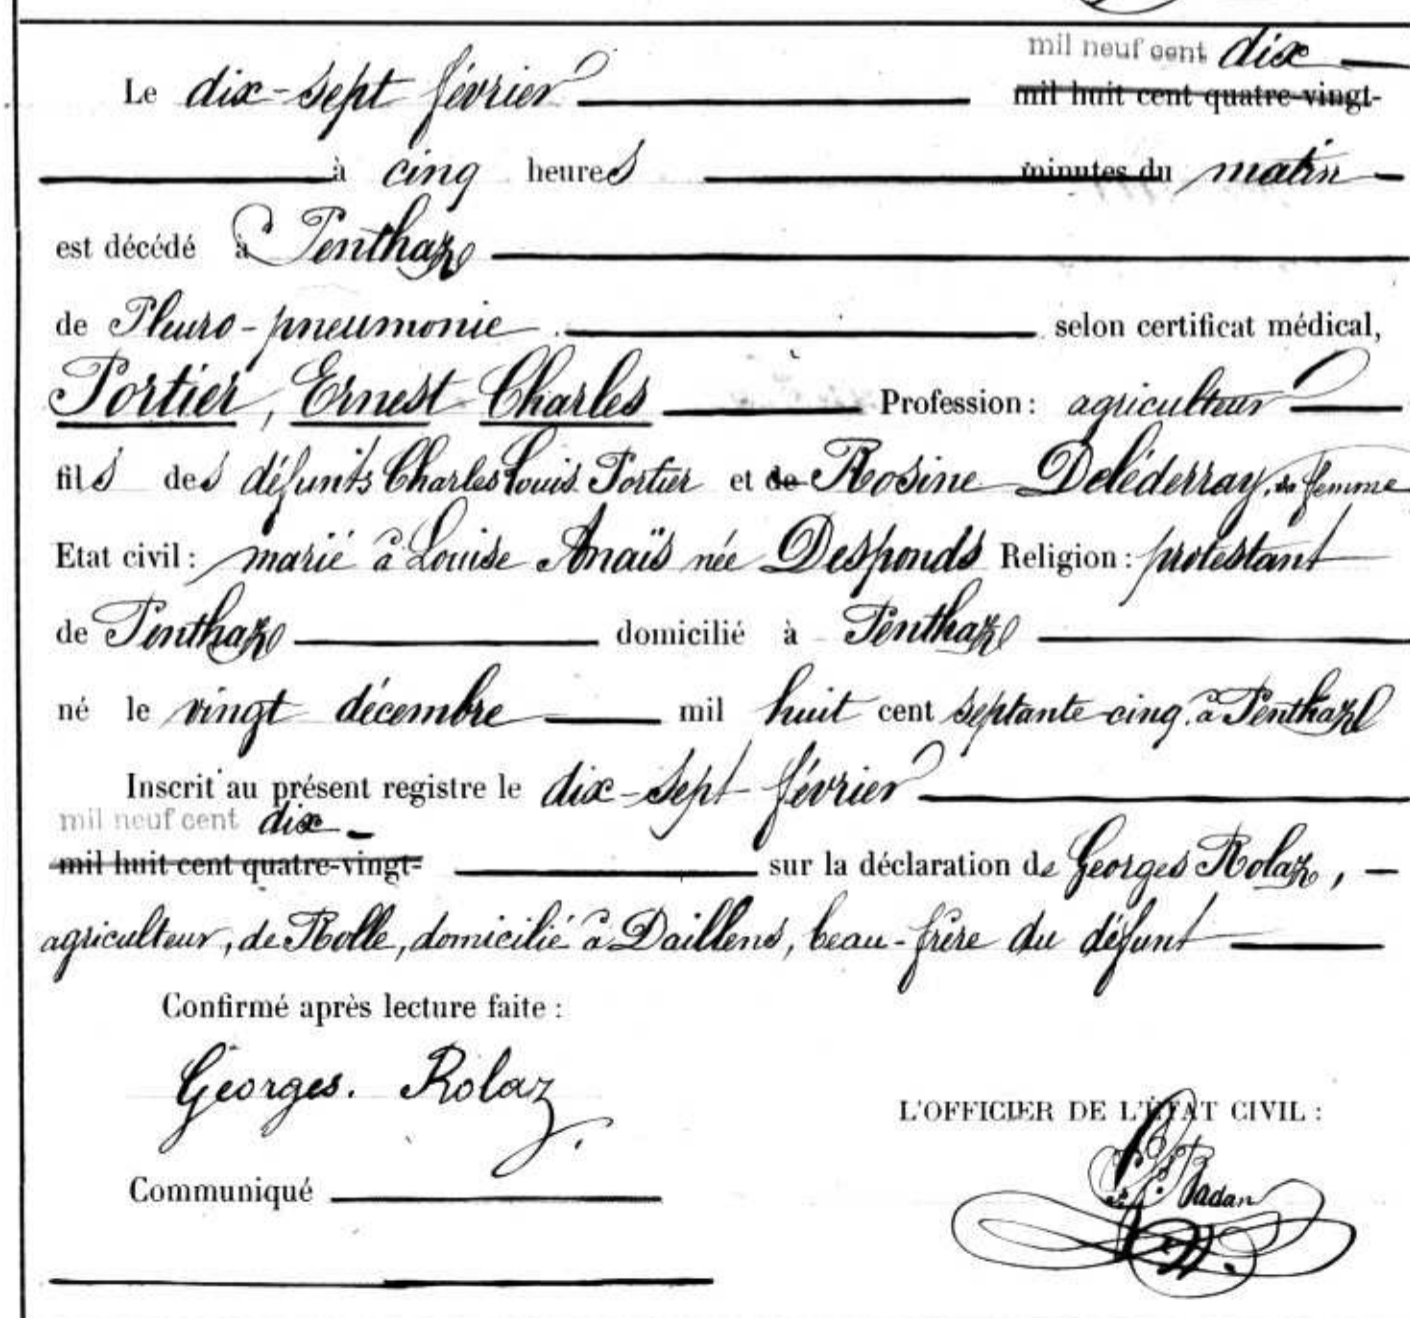 mil neuf cent dix
Le dix-sept février mil huit cent quatre-vingt-
à cinq heures minutes du matin
est décédé à Penthaz
de Pleuro-pneumonie selon certificat médical,
Portier, Ernest Charles Profession: agriculteur
fils des défunts Charles Louis Portier et de Rosine Deléderray, sa femme
Etat civil: marié à Louise Anaïs née Desponds Religion: protestant
de Penthaz domicilié à Penthaz
né le vingt décembre mil huit cent septante-cinq, à Penthaz
Inscrit au présent registre le dix-sept février
mil neuf cent dix
mil huit cent quatre-vingt- sur la déclaration de Georges Rolaz,
agriculteur, de Rolle, domicilié à Daillens, beau-frère du défunt
Confirmé après lecture faite:
Georges. Rolaz
L'OFFICIER DE L'ÉTAT CIVIL:
Communiqué
Badan